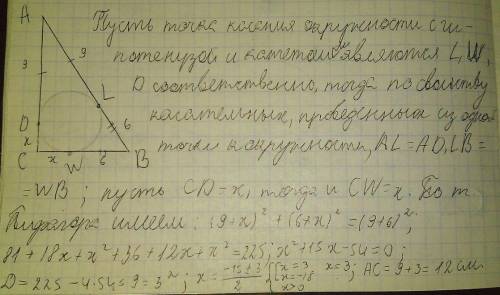 A
Пусть точка касания окружности с ги-
потенузой и катетами являются L, W,
D соответственно, тогда по свойству
касательных, проведенных из одной
точки к окружности, AL = AD, LB =
9
9
L
D
6
x
C
x
W
6
B
= WB; пусть CD = x, тогда и CW = x. По т.
Пифагора имеем: (9+x)² + (6+x)² = (9+6)²;
81 + 18x + x² + 36 + 12x + x² = 225; x² + 15x - 54 = 0;
x = 3; AC = 9 + 3 = 12 см.